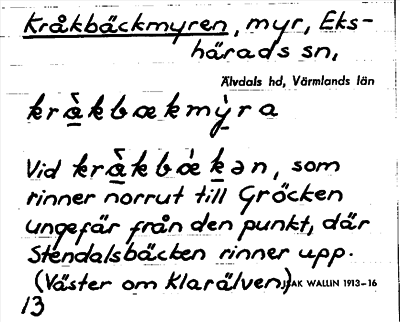 Kråkbäckmyren, myr, Eks-
härads sn,
Älvdals hd, Värmlands län
krå̀kbækmỳra
Vid krå̀kbækən, som
rinner norrut till Gröcken
ungefär från den punkt, där
Stendalsbäcken rinner upp.
(Väster om Klarälven)
ISAK WALLIN 1913-16
13